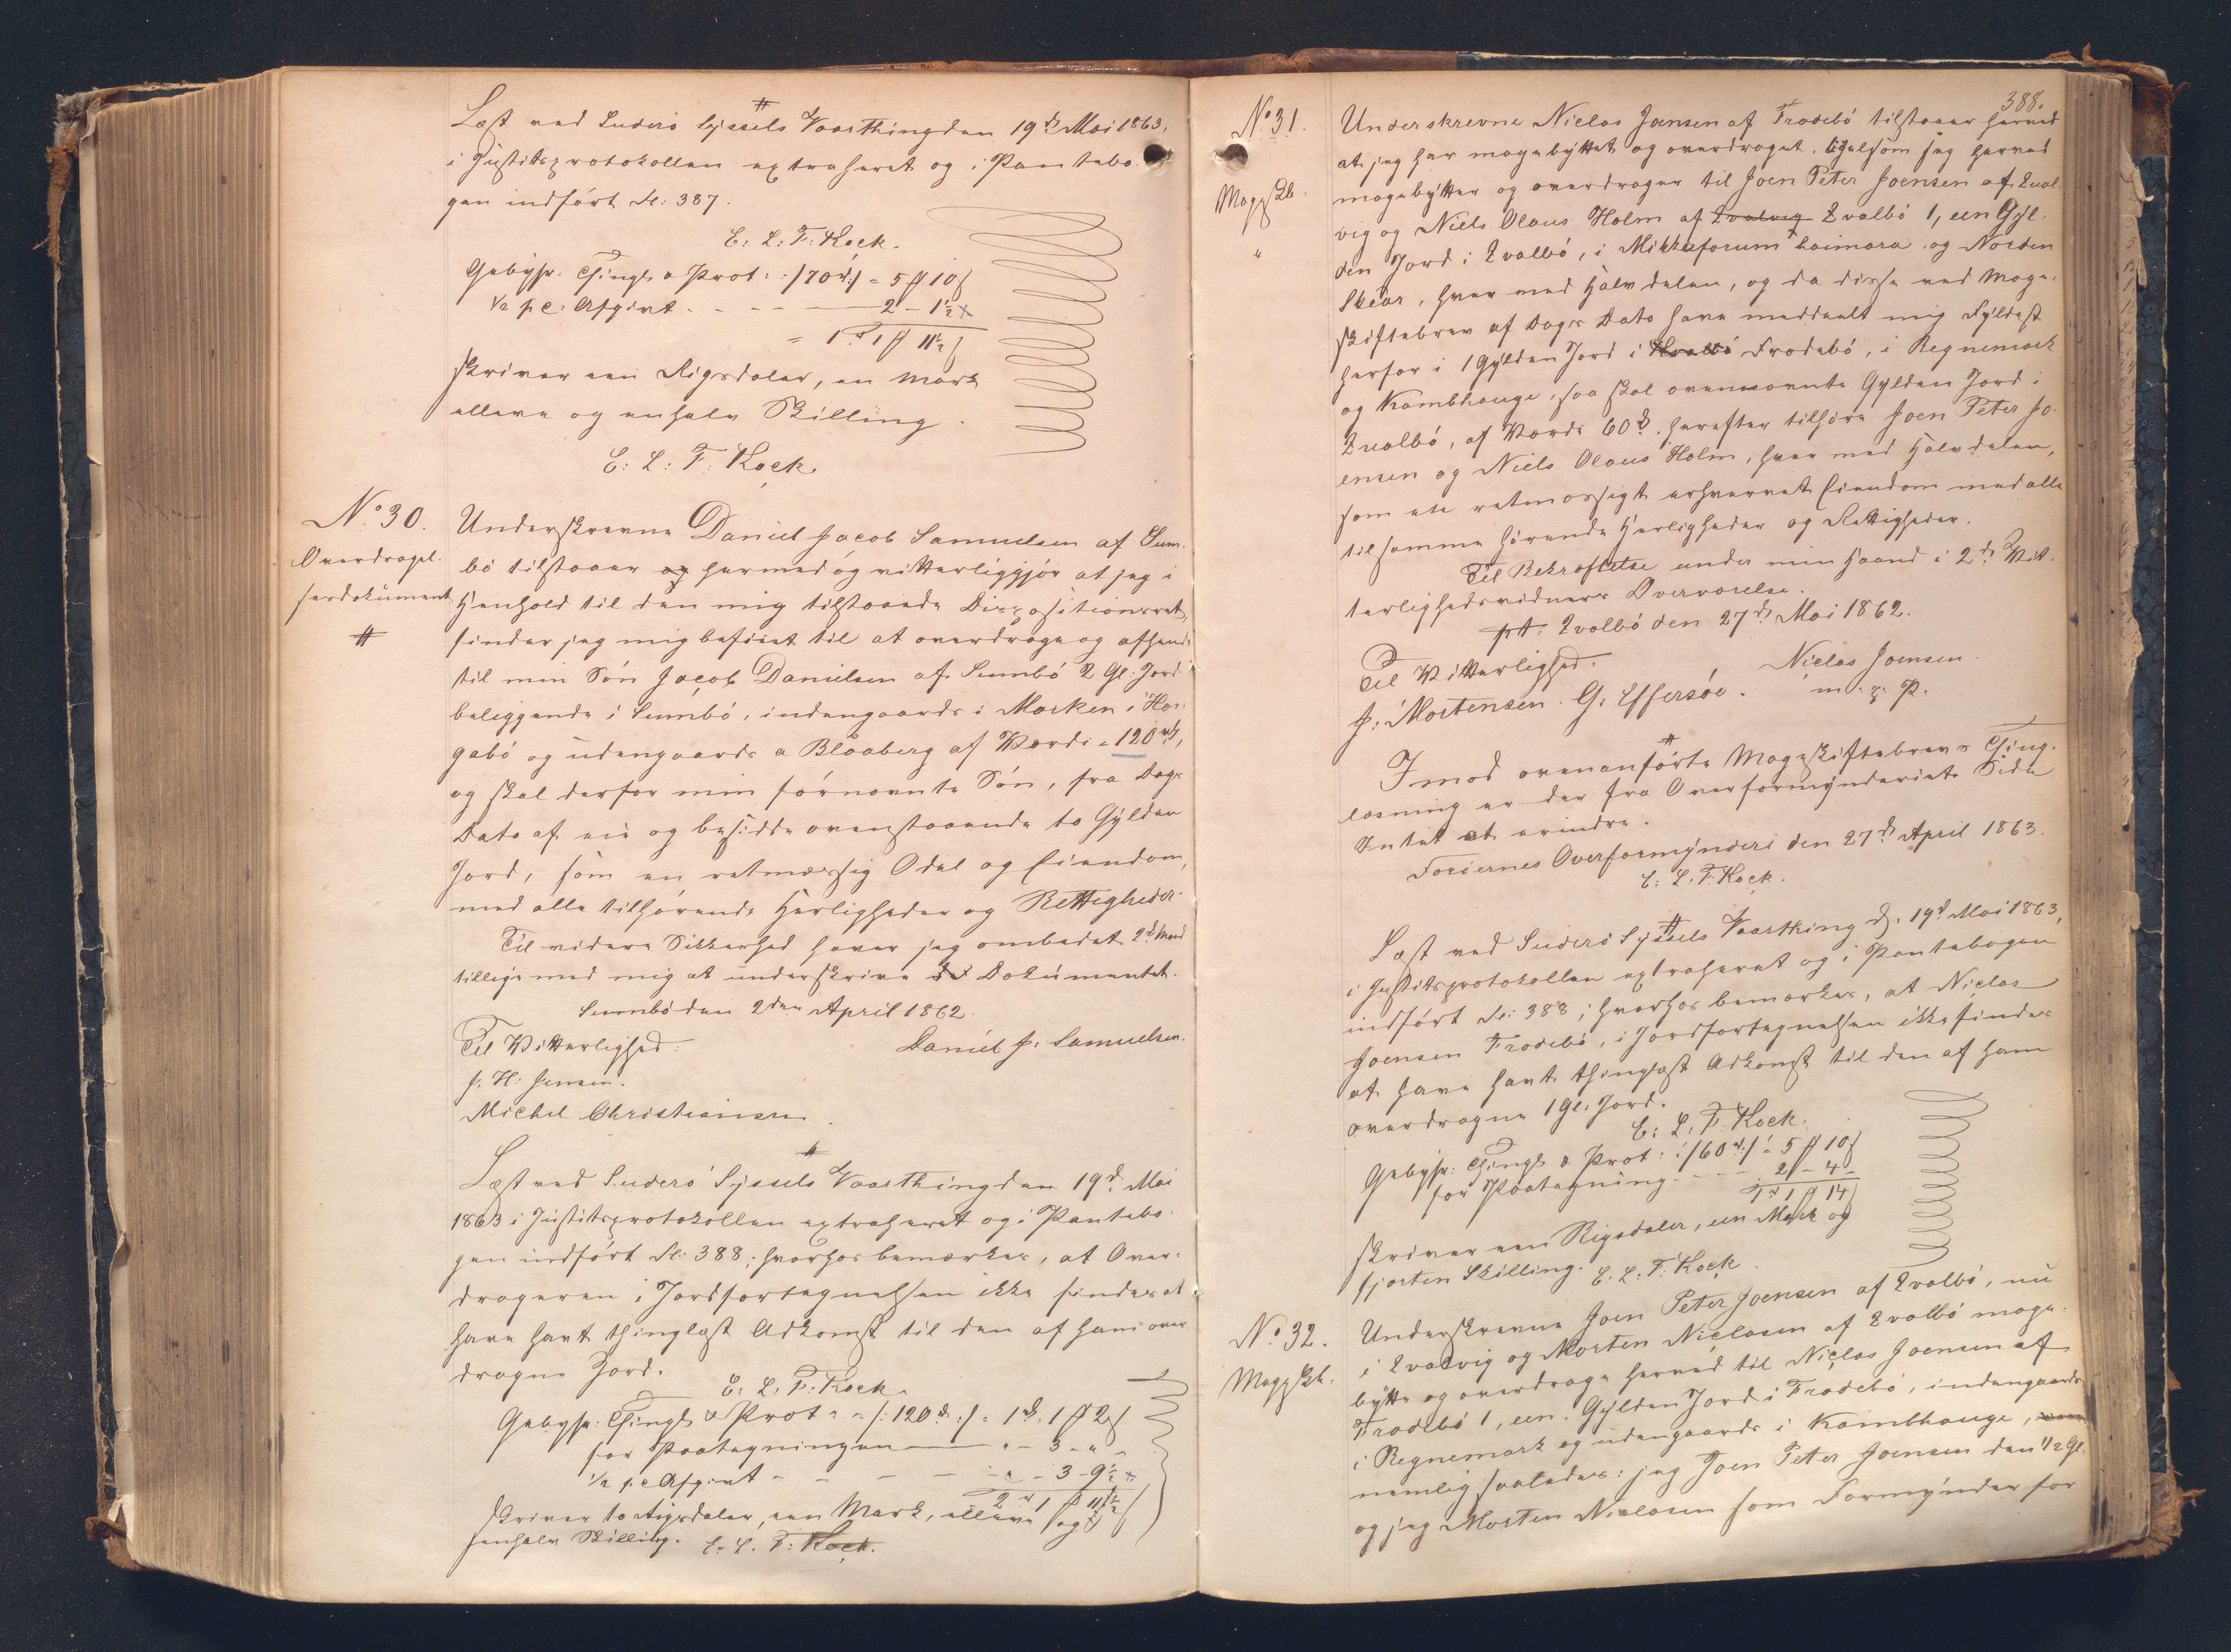 Læst ved Suderø Syssels Vaarthing den 19d Mai 1863,
i Justitsprotokollen extraheret og i Pantebo-
gen indført S: 387.
E: L: F: Kock.
Gebyhr: Thingl. & Prot: /70rd:/ = 5 ℔ 10 ß
1/2 pc: Afgivt - - - 2 - 1½
= 1rd 1 ℔ 11½ ß
skriver een Rigsdaler, en Mark
elleve og enhalv Skilling.
E: L: F: Kock.
No 30.
Overdragel-
sesdokument
Underskrevne Daniel Jacob Samuelsen af Sum-
bø tilstaaer og hermed og vitterliggjør at jeg i
Henhold til den mig tilstaaede Dispositionsret,
finder jeg mig beføiet til at overdrage og afhende
til min Søn Jacob Danielsen af Sumbø 2 Gl: Jord
beliggende i Sumbø, indengaards i Marken i Hor-
gabø og udengaards a Blåaberg af Værdi 120rd,
og skal derfor min førnævnte Søn, fra Dags
Dato af eie og besidde ovenstaaende to Gylden
Jord, som en retmæssig Odel og Eiendom,
med alle tilhørende Herligheder og Rettigheder.
Til videre Sikkerhed haver jeg ombedet 2de Mænd
tillige med mig at underskrive det Dokumentet.
Sumbø den 2den April 1862.
Til Vitterlighed: Daniel J: Samuelsen.
J. H: Jensen.
Michel Christiansen.
Læst ved Suderø Syssels Vaarthing den 19d Mai
1863 i Justitsprotokollen extraheret og i Pantebo-
gen indført S: 388; hvorhos bemærkes, at Over-
drageren i Jordfortegnelsen ikke findes at
have havt thinglæst Adkomst til den af ham over-
dragne Jord.
E: L: F: Kock.
Gebyhr: Thingl. & Prot: /:120rd:/ = 1rd 1 ℔ 2 ß
for Paategningen - " - 3 - " -
1/2 pc Afgivt - - - " - 3 - 9½
2rd 1 ℔ 11½ ß
skriver to Rigsdaler, een Mark, elleve og
enhalv Skilling. E. L. F: Kock.
388.
No 31.
Magesk
"
Underskrevne Niclas Joensen af Frodebø tilstaaer herved
at jeg har magebyttet og overdraget, ligesom jeg herved
magebytter og overdrager til Joen Peter Joensen af Qval-
vig og Niels Olaus Holm af Qvalvig Qvalbø 1, een Gyl-
den Jord i Qvalbø, i Mikkaforum haimara og Norden
Skear, hver med Halvdelen, og da disse ved Mage-
skiftebrev af Dags Dato have meddeelt mig Fyldest
herfor i 1 Gylden Jord i Hvalbø Frodebø, i Regnemark
og Kambhauge, saa skal ovennævnte Gylden Jord i
Qvalbø, af Værdi 60rd herefter tilhøre Joen Peter Jo-
ensen og Niels Olaus Holm, hver med Halvdelen,
som en retmæssigt erhvervet Eiendom med alle
tilsamme hørende Herligheder og Rettigheder.
Til Bekræftelse under min Haand i 2de Vit-
terlighedsvidners Overværelse.
pt. Qvalbø den 27d Mai 1862.
Til Vitterlighed. Niclas Joensen.
J: Mortensen. G. Effersøe. m. p. P.
Imod ovenanførte Mageskiftebrevs Thing-
læsning er der fra Overformynderiets Side
Intet at erindre.
Færøernes Overformynderi den 27d April 1863.
E: L. F: Kock.
Læst ved Suderø Syssels Vaarthing d. 19d Mai 1863,
i Justitsprotokollen extraheret og i Pantebogen
indført S: 388; hvorhos bemærkes, at Niclas
Joensen Frodebø, i Jordfortegnelsen ikke findes
at have havt thinglæst Adkomst til den af ham
overdragne 1 Gl. Jord.
E: L: F: Kock.
Gebyhr: Thingl & Prot: /60rd:/ = 5 ℔ 10 ß
for Paategning - - - 2 - 4 -
1rd 1 ℔ 14 ß
skriver een Rigsdaler, een Mark og
fjorten Skilling. E. L. F: Kock.
No 32.
Magesk.
Underskrevne Joen Peter Joensen af Qvalbø, nu
i Qvalvig og Morten Niclasen af Qvalbø mage-
bytte og overdrage herved til Niclas Joensen af
Frodebø 1, een Gylden Jord i Frodebø, indengaards
i Regnemark og udengaards i Kambhauge,
nemlig saaledes: jeg Joen Peter Joensen den 1/2 Gl.
og jeg Morten Niclasen som Formynder for